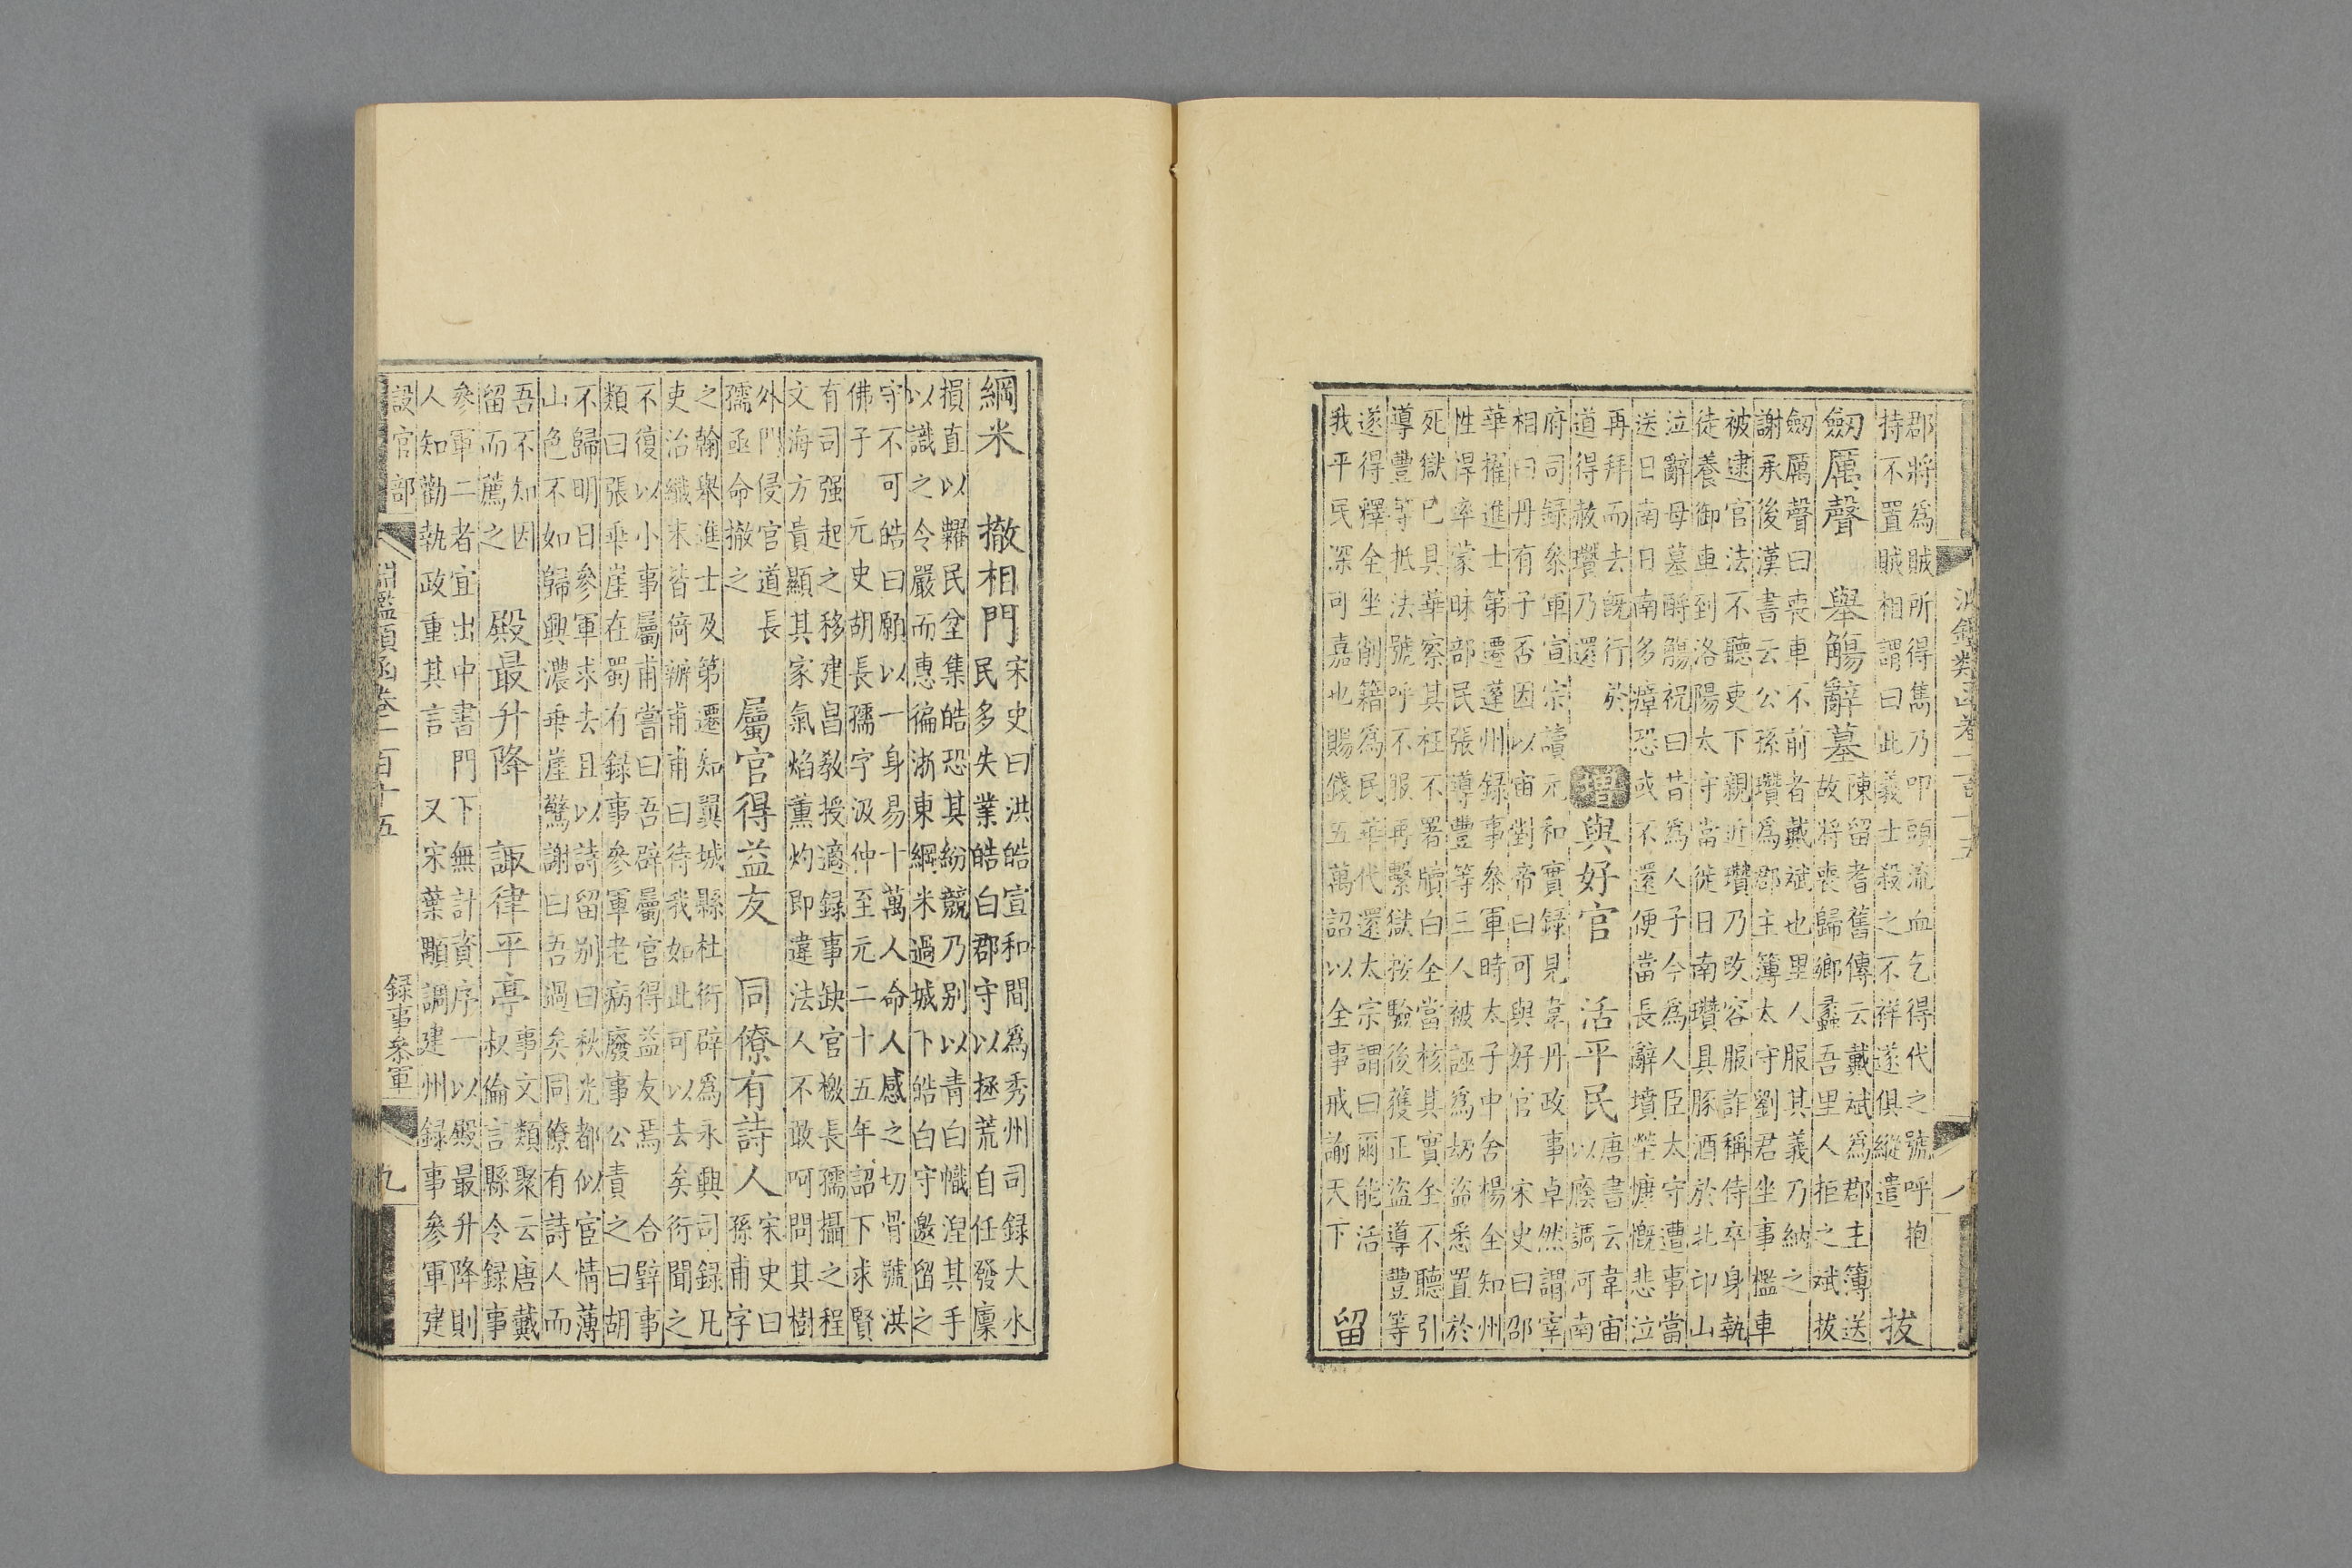 淵鑑類函卷一百十五 八
郡將爲賊所得雋乃叩頭流血乞得代之號呼抱
持不置賊相謂曰此義士殺之不祥遂俱縱遣 拔
劒厲聲 舉觴辭墓 陳留耆舊傳云戴斌爲郡主簿送
故將喪歸鄉蠡吾里人拒之斌拔
劒厲聲曰喪車不前者戴斌也里人服其義乃納之
謝承後漢書云公孫瓚爲郡主簿太守劉君坐事檻車
被逮官法不聽吏下親近瓚乃改容服詐稱侍卒身執
徒養御車到洛陽太守當徙日南瓚具豚酒於北邙山
泣辭母墓酹觴祝曰昔爲人子今爲人臣太守遭事當
送日南日南多瘴恐或不還便當長辭墳塋慷慨悲泣
再拜而去旣行於
道得赦瓚乃還 增 與好官 活平民 唐書云韋宙
以廕調河南
府司錄參軍宣宗讀元和實錄見韋丹政事卓然謂宰
相曰丹有子否因以宙對帝曰可與好官 宋史曰邵
華擢進士第遷蓬州錄事參軍時太子中舍楊全知州
性悍率蒙昧部民張導豐等三人被誣爲劫盜悉置於
死獄已具華察其枉不署牘白全當核其實全不聽引
導豐等抵法號呼不服再繫獄按驗後獲正盜導豐等
遂得釋全坐削籍爲民華代還太宗謂曰爾能活
我平民深可嘉也賜錢五萬詔以全事戒諭天下 留
綱米 撤相門 宋史曰洪皓宣和間爲秀州司錄大水
民多失業皓白郡守以拯荒自任發廩
損直以糶民坌集皓恐其紛競乃别以青白幟涅其手
以識之令嚴而惠徧浙東綱米過城下皓白守邀留之
守不可皓曰願以一身易十萬人命人感之切骨號洪
佛子 元史胡長孺字汲仲至元二十五年詔下求賢
有司强起之移建昌敎授適錄事缺官檄長孺攝之程
文海方貴顯其家氣焰薰灼即違法人不敢呵問其樹
外門侵官道長
孺亟命撤之 屬官得益友 同僚有詩人 宋史曰
孫甫字
之翰舉進士及第遷知翼城縣杜衍辟爲永興司錄凡
吏治纖末皆倚辦甫甫曰待我如此可以去矣衍聞之
不復以小事屬甫嘗曰吾辟屬官得益友焉 合璧事
類曰張乖崖在蜀有錄事參軍老病廢事公責之曰胡
不歸明日參軍求去且以詩留别曰秋光都似宦情薄
山色不如歸興濃乖崖驚謝曰吾過矣同僚有詩人而
吾不知因
留而薦之 殿最升降 諏律平亭 事文類聚云唐戴
叔倫言縣令錄事
參軍二者宜出中書門下無計資序一以殿最升降則
人知勸執政重其言 又宋葉顒調建州錄事參軍建
設官部 淵鑑類函卷一百十五 錄事參軍 九